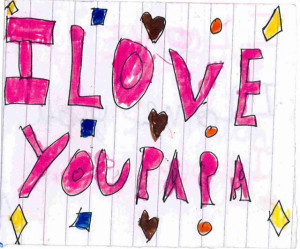 I LOVE
YOUPAPA